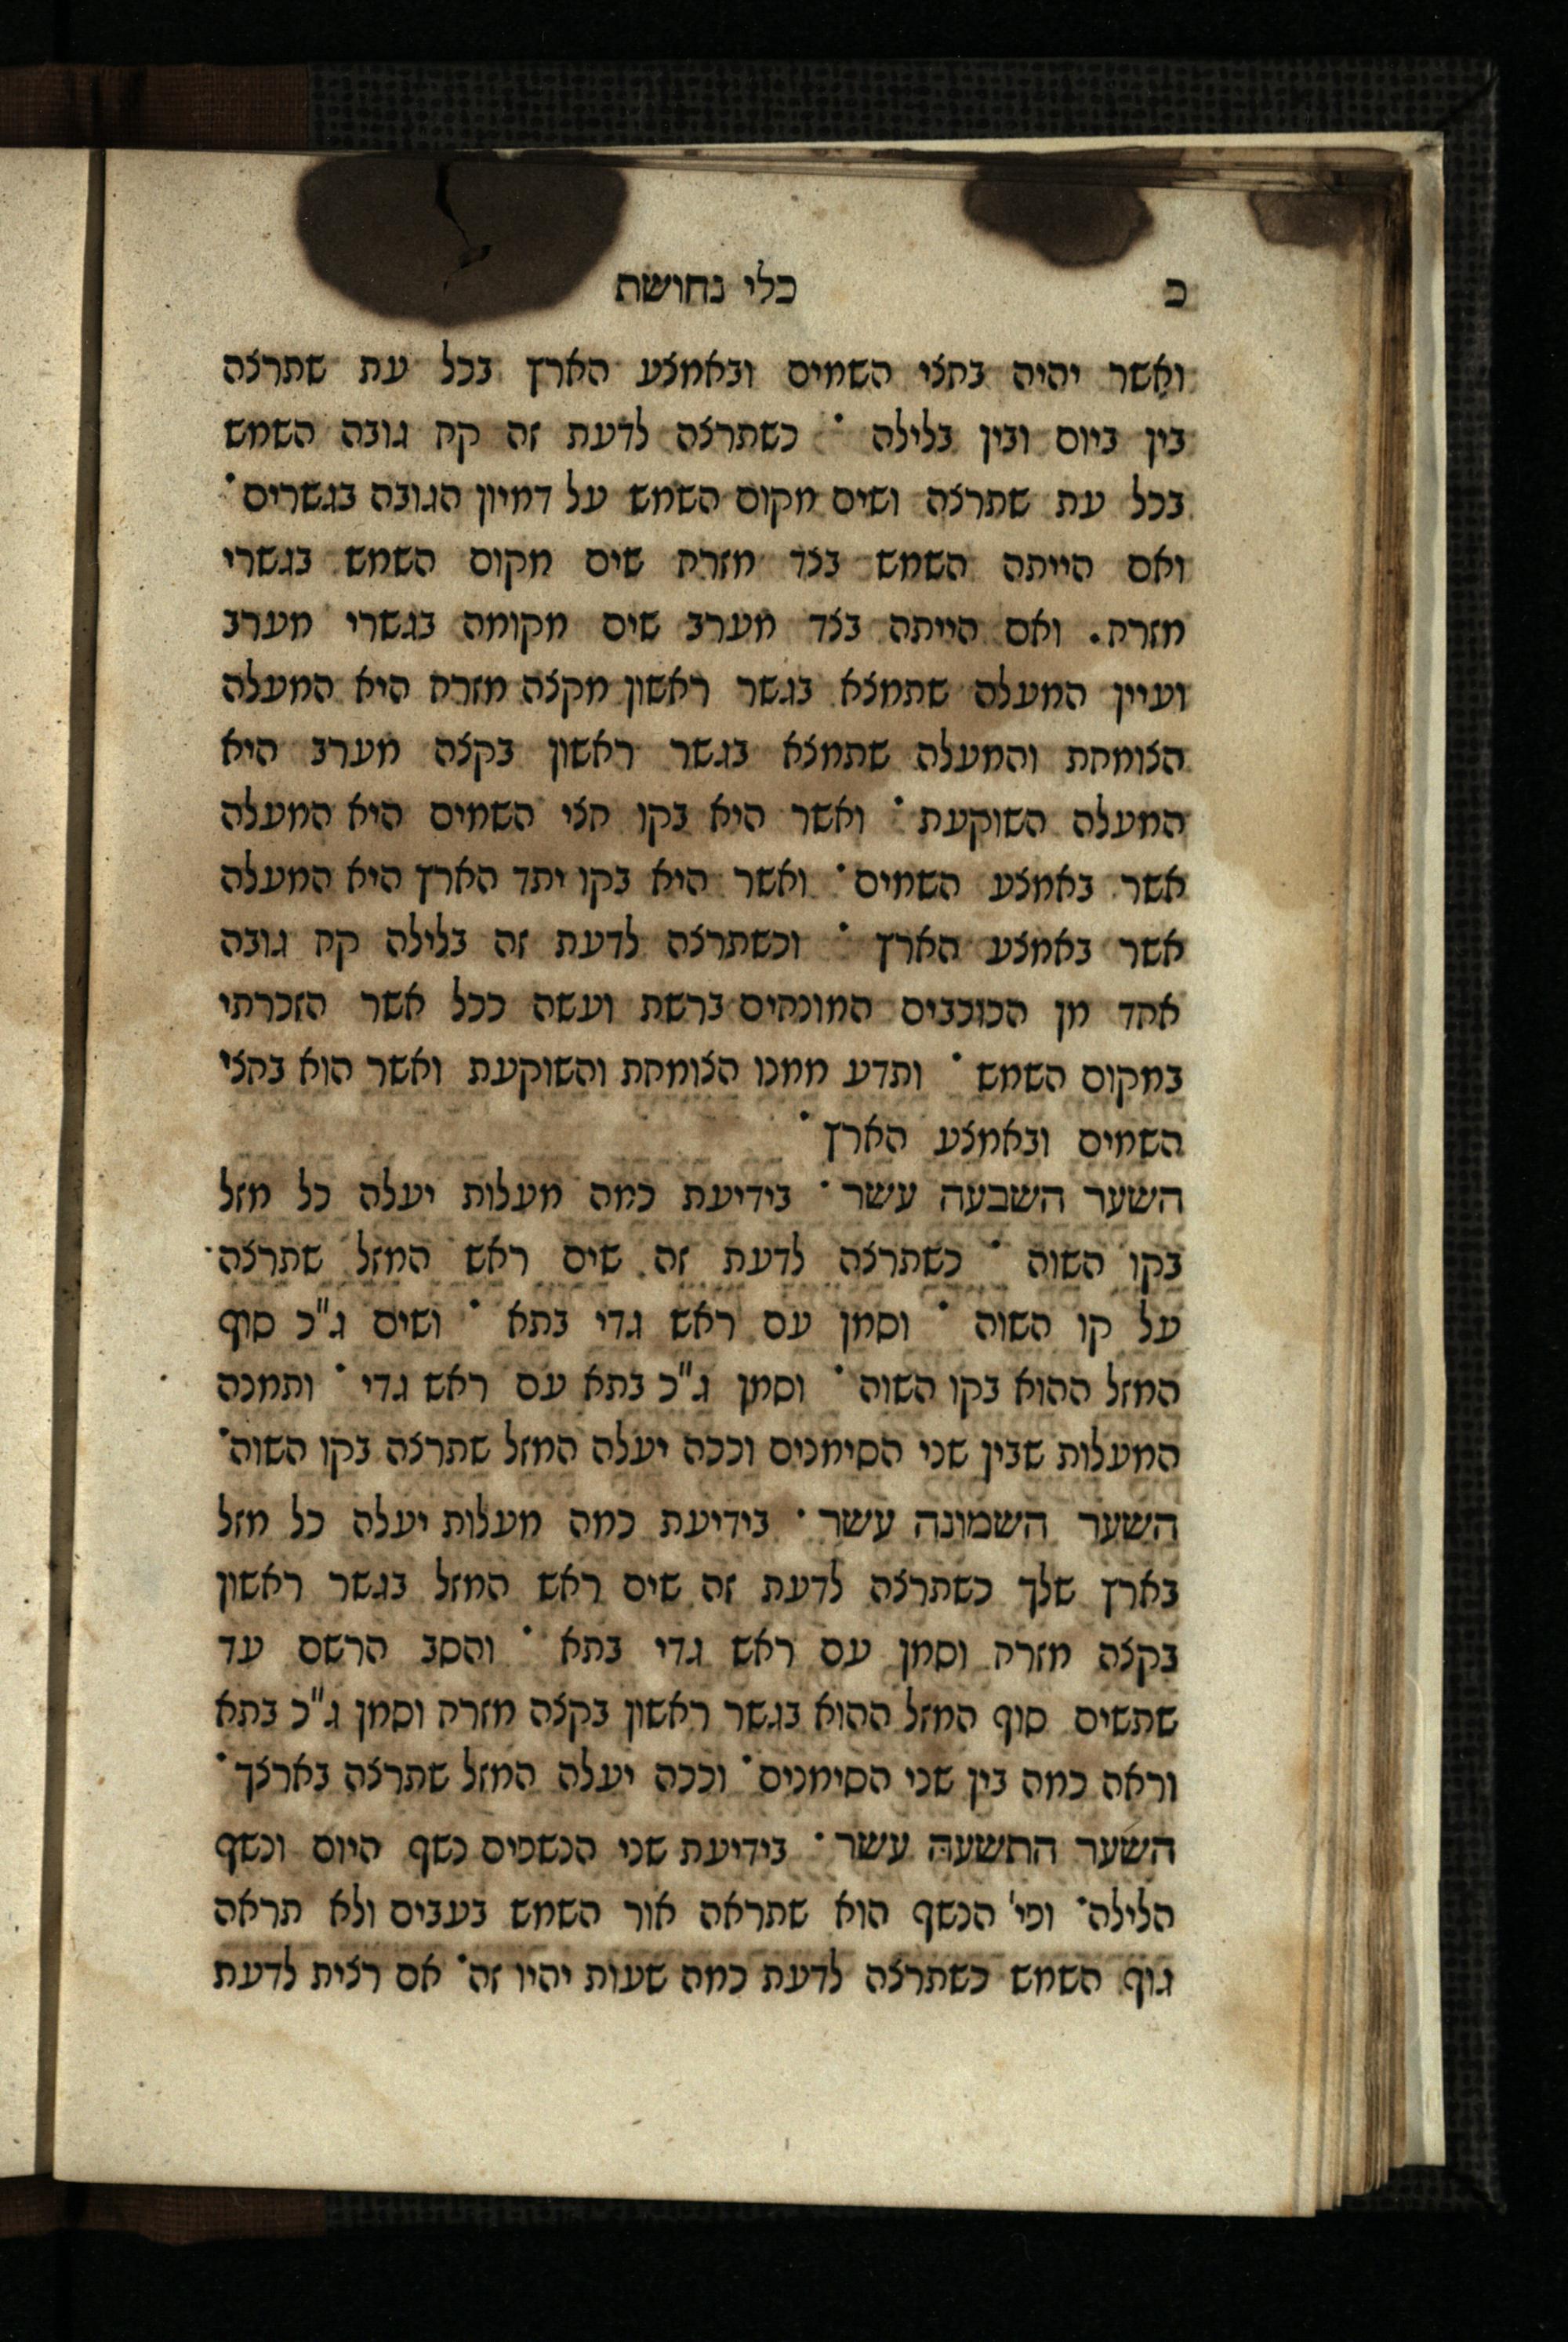 כ
כלי נחושת
ואשר יהיה בחצי השמים ובאמצע הארץ בכל עת שתרצה
בין ביום ובין בלילה ˙ כשתרצה לדעת זה קח גובה השמש
בכל עת שתרצה ושים מקום השמש על דמיון הגובה בגשרים˙
ואם הייתה השמש בצד מזרח שים מקום השמש בגשרי
מזרח. ואם הייתה בצד מערב שים מקומה בגשרי מערב
ועיין המעלה שתמצא בגשר ראשון מקצה מזרח היא המעלה
הצומחת והמעלה שתמצא בגשר ראשון בקצה מערב היא
המעלה השוקעת ˙ ואשר היא בקו חצי השמים היא המעלה
אשר באמצע השמים ˙ ואשר היא בקו יתד הארץ היא המעלה
אשר באמצע הארץ ˙ וכשתרצה לדעת זה בלילה קח גובה
אחד מן הכוכבים המונחים ברשת ועשה ככל אשר הזכרתי
במקום השמש ˙ ותדע ממנו הצומחת והשוקעת ואשר הוא בחצי
השמים ובאמצע הארץ ˙
השער השבעה עשר ˙ בידיעת כמה מעלות יעלה כל מזל
בקו השוה ˙ כשתרצה לדעת זה שים ראש המזל שתרצה
על קו השוה ˙ וסמן עם ראש גדי בתא ˙ ושים ג"כ סוף
המזל ההוא בקו השוה ˙ וסמן ג"כ בתא עם ראש גדי ˙ ותמנה
המעלות שבין שני הסימנים וככה יעלה המזל שתרצה בקו השוה˙
השער השמונה עשר ˙ בידיעת כמה מעלות יעלה כל מזל
בארץ שלך כשתרצה לדעת זה שים ראש המזל בגשר ראשון
בקצה מזרח וסמן עם ראש גדי בתא ˙ והסב הרשם עד
שתשים סוף המזל ההוא בגשר ראשון בקצה מזרח וסמן ג"כ בתא
וראה כמה בין שני הסימנים˙ וככה יעלה המזל שתרצה בארצך˙
השער התשעה עשר ˙ בידיעת שני הנשפים נשף היום ונשף
הלילה˙ ופי' הנשף הוא שתראה אור השמש בעבים ולא תראה
גוף השמש כשתרצה לדעת כמה שעות יהיו זה˙ אם רצית לדעת